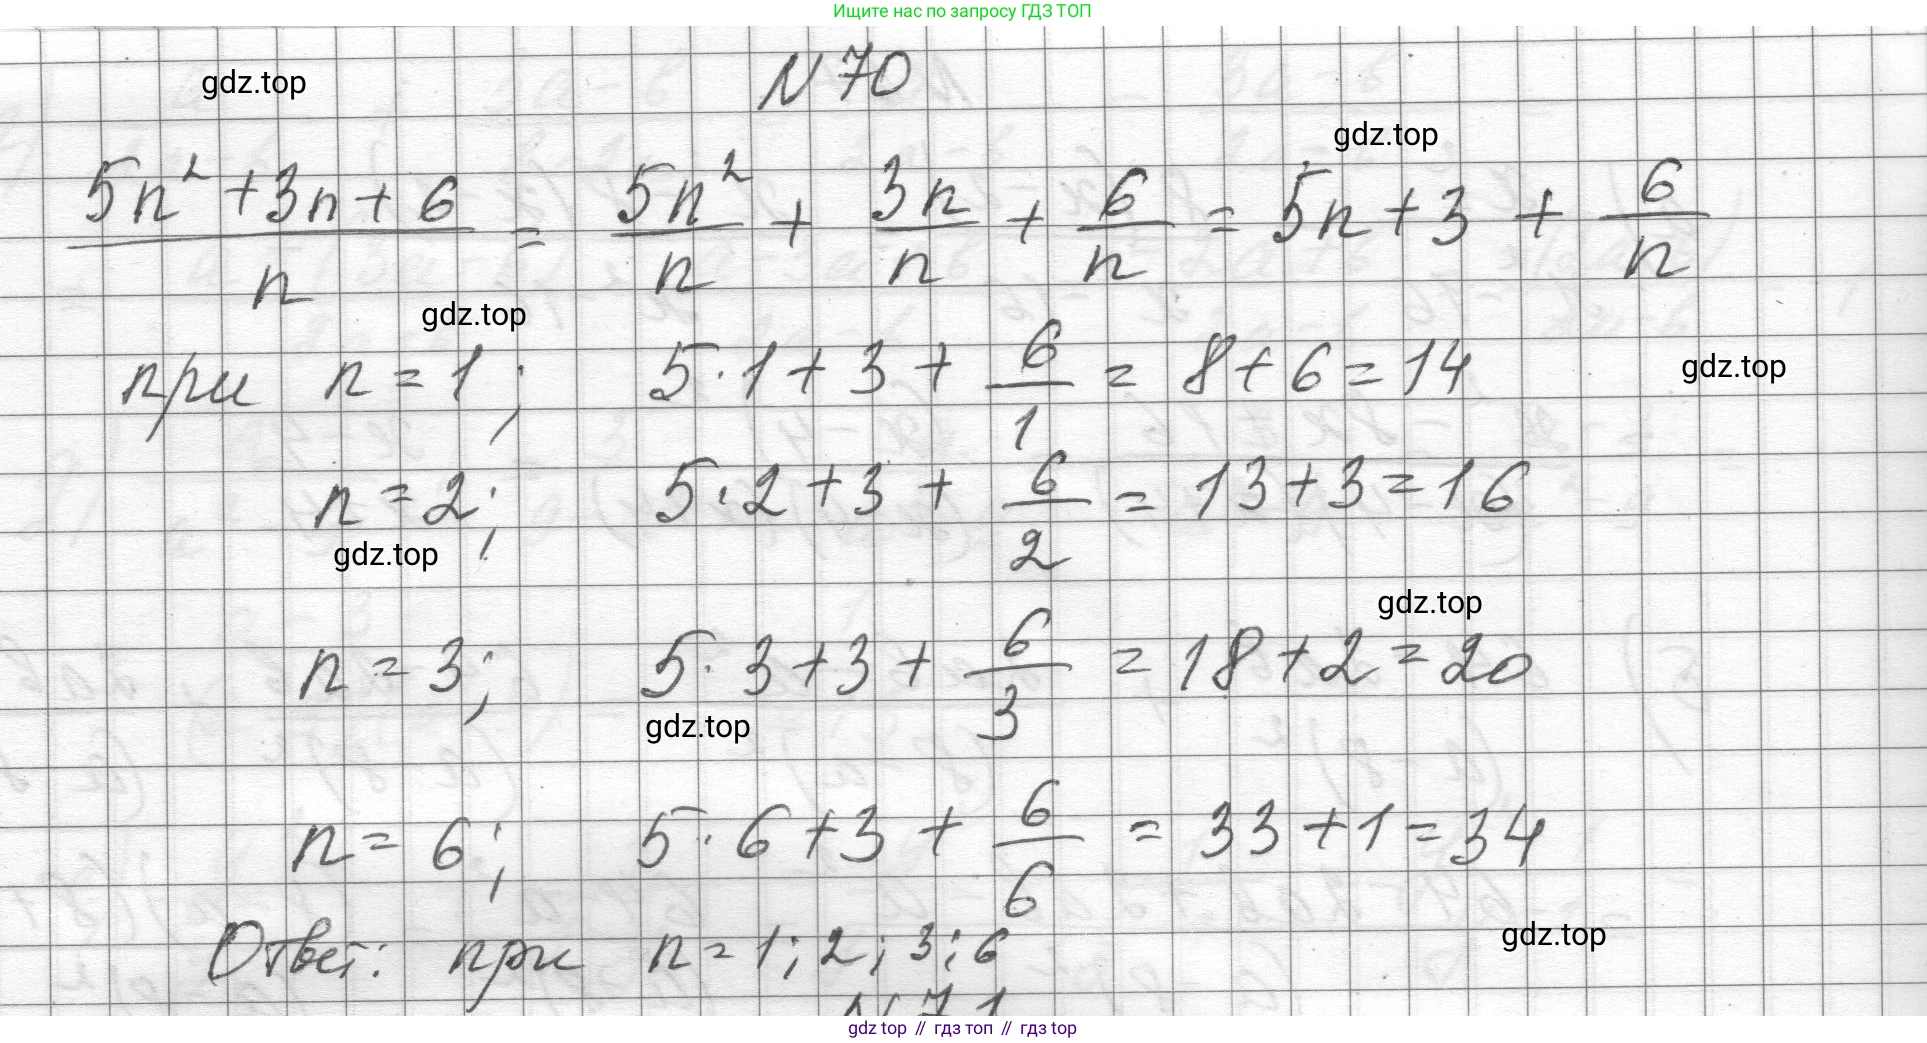 Ищите нас по запросу ГДЗ ТОП
N 70
gdz.top
gdz.top
(5n² + 3n + 6)/n = 5n²/n + 3n/n + 6/n = 5n + 3 + 6/n
gdz.top
при n = 1; 5 · 1 + 3 + 6/1 = 8 + 6 = 14
gdz.top
n = 2; 5 · 2 + 3 + 6/2 = 13 + 3 = 16
gdz.top
gdz.top
n = 3; 5 · 3 + 3 + 6/3 = 18 + 2 = 20
gdz.top
n = 6; 5 · 6 + 3 + 6/6 = 33 + 1 = 34
Ответ: при n = 1; 2; 3; 6
gdz.top
N 71
gdz top // гдз топ // гдз top